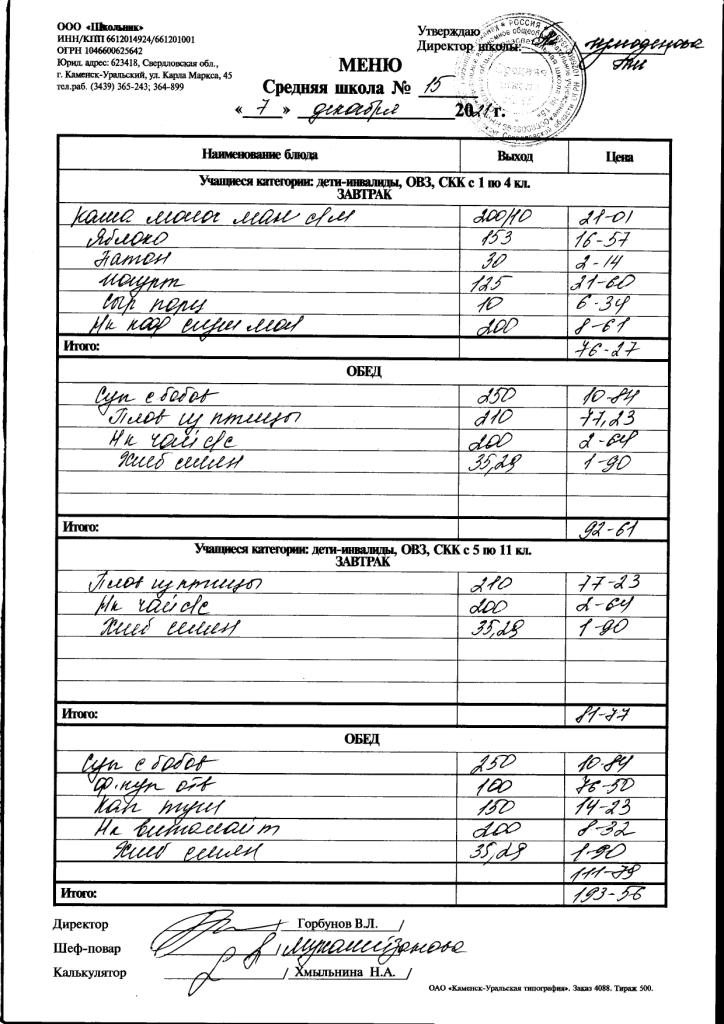 ООО «Школьник»
ИНН/КПП 6612014924/661201001
ОГРН 1046600625642
Юрид. адрес: 623418, Свердловская обл.,
г. Каменск-Уральский, ул. Карла Маркса, 45
тел.раб. (3439) 365-243; 364-899
Утверждаю
Директор школы:
МЕНЮ
Средняя школа № 15
« 7 » декабря 2021 г.
Наименование блюда Выход Цена
Учащиеся категории: дети-инвалиды, ОВЗ, СКК с 1 по 4 кл.
ЗАВТРАК
каша молоч ман с/м 200/10 21-01
Яблоко 153 16-57
Батон 30 2-14
йогурт 125 21-60
Сыр порц 10 6-34
Нк коф сгущ мол 200 8-61
Итого: 76-27
ОБЕД
Суп с бобов 250 10-84
Плов из птицы 210 77,23
Нк чай с/с 200 2-64
Хлеб 35,29 1-90
Итого: 92-61
Учащиеся категории: дети-инвалиды, ОВЗ, СКК с 5 по 11 кл.
ЗАВТРАК
Плов из птицы 210 77-23
Нк чай с/с 200 2-64
Хлеб 35,29 1-90
Итого: 81-77
ОБЕД
Суп с бобов 250 10-84
Ф.кур отв 100 76-50
Кап туш 150 14-23
Нк витолайт 200 8-32
Хлеб 35,29 1-90
111-79
Итого: 193-56
Директор / Горбунов В.Л. /
Шеф-повар /
Калькулятор / Хмыльнина Н.А. /
ОАО «Каменск-Уральская типография». Заказ 4088. Тираж 500.